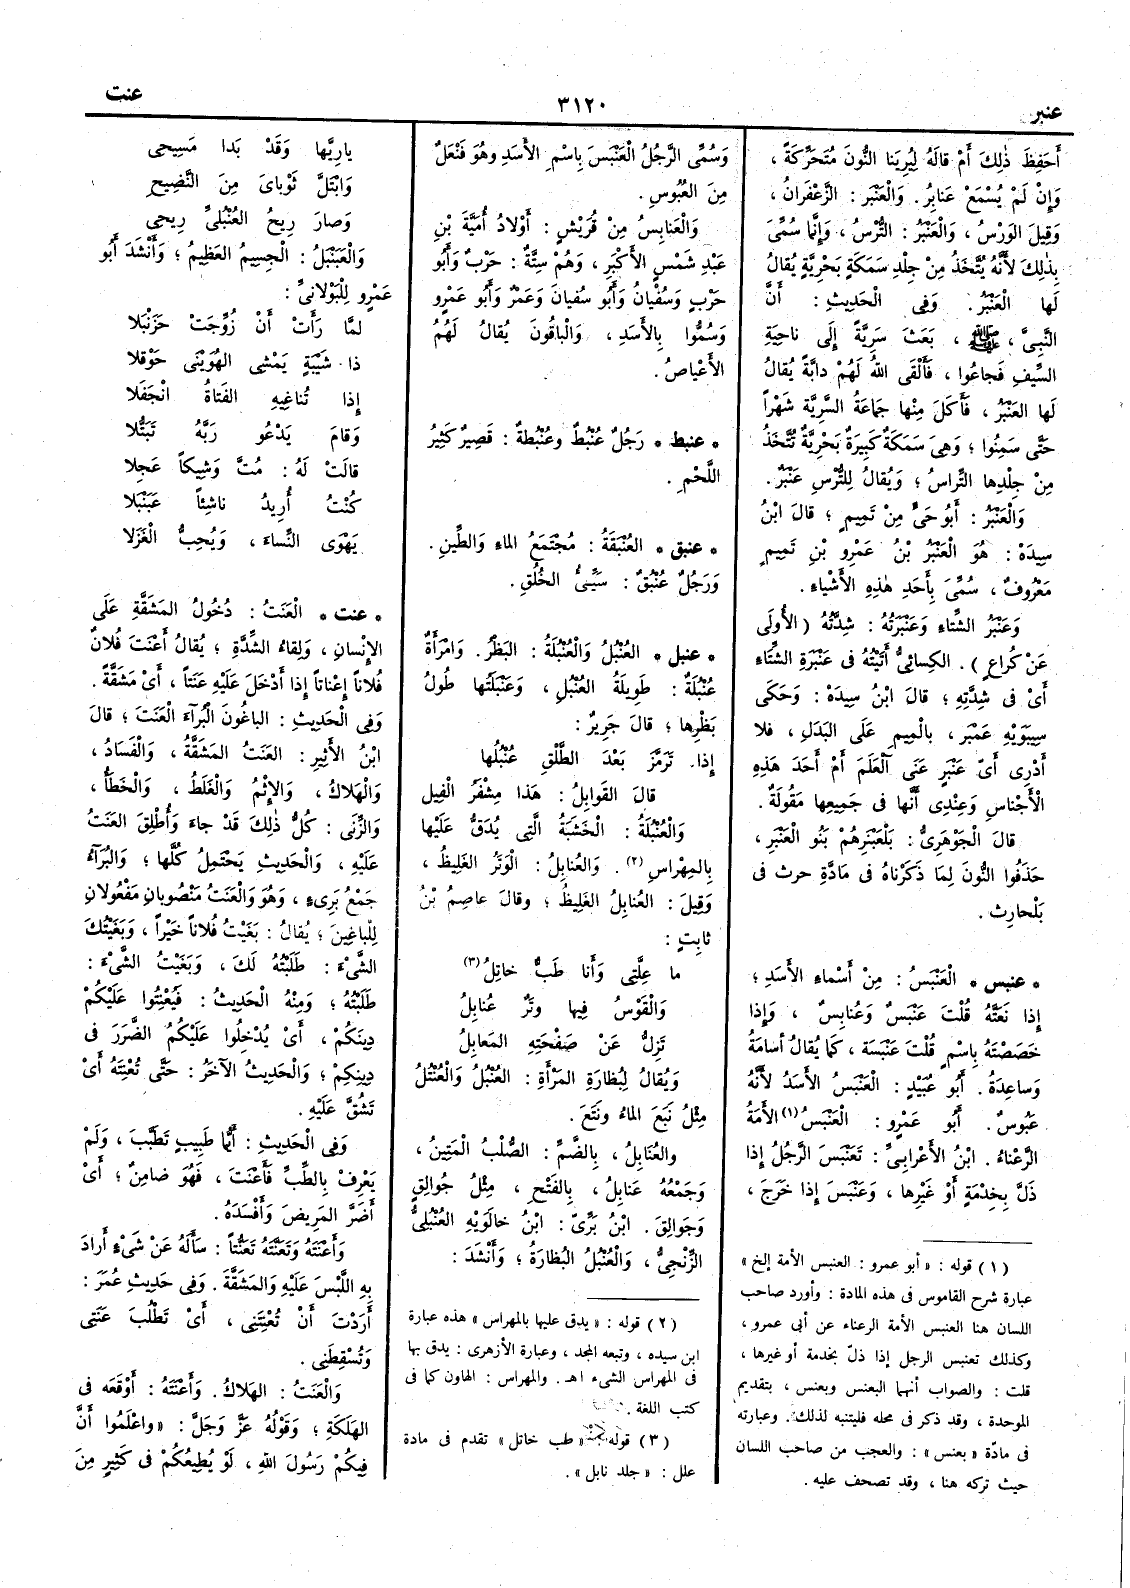 عنبر
٣١٢٠
عنت
أَحْفِظَ ذٰلِكَ أَمْ قالَهُ لِيُرِيَنا النُّونَ مُتَحَرِّكَةً ،
وَإِنْ لَمْ يُسْمَعْ عَنابِرُ . وَالْعَنْبَرُ : الزَّعْفَرانُ ،
وَقِيلَ الوَرْسُ ، وَالْعَنْبَرُ : التُّرْسُ ، وَإِنَّما سُمِّىَ
بِذٰلِكَ لأَنَّهُ يُتَّخَذُ مِنْ جِلْدِ سَمَكَةٍ بَحْرِيَّةٍ يُقالُ
لَها الْعَنْبَرُ . وَفِى الْحَدِيثِ : أَنَّ
النَّبِىَّ ، ﷺ ، بَعَثَ سَرِيَّةً إِلَى ناحِيَةِ
السِّيفِ فَجاعُوا ، فَأَلْقَى اللهُ لَهُمْ دابَّةً يُقالُ
لَها العَنْبَرُ ، فَأَكَلَ مِنْها جَماعَةُ السَّرِيَّةِ شَهْراً
حَتَّى سَمِنُوا ؛ وَهِىَ سَمَكَةٌ كَبِيرَةٌ بَحْرِيَّةٌ تُتَّخَذُ
مِنْ جِلْدِها التِّراسُ ؛ وَيُقالُ لِلتُّرْسِ عَنْبَرٌ .
وَالْعَنْبَرُ : أَبُو حَىٍّ مِنْ تَمِيمٍ ؛ قالَ ابْنُ
سِيدَهْ : هُوَ الْعَنْبَرُ بْنُ عَمْرِو بْنِ تَمِيمٍ
مَعْرُوفٌ ، سُمِّىَ بِأَحَدِ هٰذِهِ الأَشْياءِ .
وَعَنْبَرُ الشِّتاءِ وَعَنْبَرَتُهُ : شِدَّتُهُ ( الأُولَى
عَنْ كُراعٍ ) . الكِسائِىُّ أَتَيْتُهُ فى عَنْبَرَةِ الشِّتاءِ
أَىْ فى شِدَّتِهِ ؛ قالَ ابْنُ سِيدَهْ : وَحَكَى
سِيبَوَيْهِ عَمْبَر ، بالْمِيمِ عَلَى البَدَلِ ، فلا
أَدْرِى أَىَّ عَنْبَرٍ عَنَى آلْعَلَمَ أَمْ أَحَدَ هَذِهِ
الْأَجْناسِ وَعِنْدِى أَنَّها فى جَمِيعِها مَقُولَةٌ .
قالَ الْجَوْهَرِىُّ : بَلْعَنْبَرِهُمْ بَنُو العَنْبَرِ ،
حَذَفُوا النُّونَ لِمَا ذَكَرْناهُ فى مَادَّةِ حرث فى
بَلْحارِث .
* عنبس * الْعَنْبَسُ : مِنْ أَسْماءِ الأَسَدِ ؛
إِذا نَعَتَّهُ قُلْتَ عَنْبَسٌ وَعُنابِسٌ ، وَإِذا
خَصَصْتَهُ بِاسْمٍ قُلْتَ عَنْبَسَة ، كَما يُقالُ أُسامَةُ
وَساعِدَةُ . أَبُو عُبَيْدٍ : الْعَنْبَسُ الأَسَدُ لأَنَّهُ
عَبُوسٌ . أَبُو عَمْرٍو : الْعَنْبَسُ(١) الأَمَةُ
الرَّعْناءُ . ابْنُ الأَعْرابِىِّ : تَعَنْبَسَ الرَّجُلُ إِذا
ذَلَّ بِخِدْمَةٍ أَوْ غَيْرِها ، وَعَنْبَسَ إِذا خَرَجَ ،
(١) قوله : « أبو عمرو : العنبس الأمة إلخ »
عبارة شرح القاموس فى هذه المادة : وأورد صاحب
اللسان هنا العنبس الأمة الرعناء عن أبى عمرو ،
وكذلك تعنبس الرجل إذا ذلّ بخدمة أو غيرها ،
قلت : والصواب أنهما البعنس وبعنس ، بتقديم
الموحدة ، وقد ذكر فى محله فليتنبه لذلك . وعبارته
فى مادّة « بعنس » : والعجب من صاحب اللسان
حيث تركه هنا ، وقد تصحف عليه .
وَسُمِّىَ الرَّجُلُ الْعَنْبَسَ بِاسْمِ الأَسَدِ وهُوَ فَنْعَلٌ
مِنَ العُبُوسِ .
وَالْعَنابِسُ مِنْ قُرَيْشٍ : أَوْلادُ أُمَيَّةَ بْنِ
عَبْدِ شَمْسٍ الأَكْبَرِ ، وَهُمْ سِتَّةٌ : حَرْبٌ وَأَبُو
حَرْبٍ وَسُفْيانُ وَأَبُو سُفْيانَ وَعَمْرٌ وَأَبُو عَمْرٍو
وَسُمُّوا بِالأَسَدِ ، وَالْباقُونَ يُقالُ لَهُمُ
الأَعْياصُ .
* عنبط * رَجُلٌ عُنْبُطٌ وعُنْبُطَةٌ : قَصِيرٌ كَثِيرُ
اللَّحْمِ .
* عنبق * العُنْبُقَةُ : مُجْتَمَعُ الماءِ وَالطِّينِ .
وَرَجُلٌ عُنْبُقٌ : سَيِّىُّ الخُلُقِ .
* عنبل * العُنْبُلُ وَالْعُنْبُلَةُ : البَظْرُ . وَامْرَأَةٌ
عُنْبُلَةٌ : طَوِيلَةُ العُنْبُلِ ، وَعَنْبَلَتُها طُولُ
بَظْرِها ؛ قالَ جَرِيرٌ :
إِذا . تَرَمَّزَ بَعْدَ الطَّلْقِ عُنْبُلُها
قالَ القَوابِلُ : هَذا مِشْفَرُ الْفِيلِ
وَالْعُنْبُلَةُ : الْخَشَبَةُ الَّتِى يُدَقُّ عَلَيْها
بِالمِهْراسِ (٢) . وَالعُنابِلُ : الْوَتَرُ الغَلِيظُ ،
وَقِيلَ : العُنابِلُ الغَلِيظُ ؛ وقالَ عاصِمُ بْنُ
ثابِتٍ :
ما عِلَّتِى وَأَنا طَبٌّ خاتِلُ(٣)
وَالْقَوْسُ فِيها وَتَرٌ عُنابِلُ
تَزِلُّ عَنْ صَفْحَتِهِ المَعابِلُ
وَيُقالُ لِبُظارَةِ المَرْأَةِ : العُنْبُلُ وَالْعُنْتُلُ
مِثْلُ نَبَعَ الماءُ ونَتَعَ .
والعُنَابِلُ ، بِالضَّمِّ : الصُّلْبُ الْمَتِينُ ،
وَجَمْعُهُ عَنابِلُ ، بِالفَتْحِ ، مِثْلُ جُوالِقٍ
وَجَوالِقَ . ابْنُ بَرِّىّ : ابْنُ خالَوَيْهِ العُنْبُلِىُّ
الزَّنْجِىُّ ، وَالْعُنْبُلُ البُظارَةُ ؛ وَأَنْشَدَ :
(٢) قوله : « يدق عليها بالمهراس » هذه عبارة
ابن سيده ، وتبعه المجد ، وعبارة الأزهرى : يدق بها
فى المهراس الشىء اهـ . والمهراس : الهاون كما فى
كتب اللغة .
(٣) قوله « طب خاتل » تقدم فى مادة
علل : « جلد نابل » .
يارِيَّها وَقَدْ بَدا مَسِيحى
وَابْتَلَّ ثَوْباىَ مِنَ النَّضِيحِ
وَصارَ رِيحُ العُنْبُلىِّ رِيحِى
وَالْعَبَنْبَلُ : الْجِسِيمُ العَظِيمُ ؛ وَأَنْشَدَ أَبُو
عَمْرٍو لِلْبَوْلانىِّ :
لمَّا رَأَتْ أَنْ زُوِّجَتْ حَزَنْبَلا
ذا شَيْبَةٍ يَمْشِى الهُوَيْنَى حَوْقَلا
إِذا تُناغِيهِ الفَتاةُ انْجَفَلا
وَقامَ يَدْعُو رَبَّهُ تَبَتُّلا
قالَتْ لَهُ : مُتَّ وَشِيكاً عَجِلا
كُنْتُ أُرِيدُ ناشِئاً عَبَنْبَلا
يَهْوَى النِّساءَ ، وَيُحِبُّ الْغَزَلا
* عنت * الْعَنَتُ : دُخُولُ المَشَقَّةِ عَلَى
الإِنْسانِ ، وَلِقاءُ الشِّدَّةِ ؛ يُقالُ أَعْنَتَ فُلانٌ
فُلاناً إِعْناتاً إِذا أَدْخَلَ عَلَيْهِ عَنَتاً ، أَىْ مَشَقَّةً .
وَفِى الْحَدِيثِ : الباغُونَ الْبُرَآءَ الْعَنَتَ ؛ قالَ
ابْنُ الأَثِيرِ : العَنَتُ المَشَقَّةُ ، وَالْفَسَادُ ،
وَالْهَلاكُ ، وَالإِثْمُ وَالْغَلَطُ ، وَالْخَطَأُ ،
وَالزِّنَى : كُلُّ ذٰلِكَ قَدْ جاءَ وَأُطْلِقَ العَنَتُ
عَلَيْهِ ، وَالْحَدِيثِ يَحْتَمِلُ كُلَّها ؛ وَالْبُرَآءُ
جَمْعُ بَرِىءٍ ، وَهُوَ وَالْعَنَتُ مَنْصُوبانِ مَفْعُولانِ
لِلْباغِينَ ؛ يُقالُ : بَغَيْتُ فُلاناً خَيْراً ، وَبَغَيْتُكَ
الشَّىْءَ : طَلَبْتُهُ لَكَ ، وَبَغَيْتُ الشَّىْءَ :
طَلَبْتُهُ ؛ وَمِنْهُ الْحَدِيثُ : فَيُعْنِتُوا عَلَيْكُمْ
دِينَكُمْ ، أَىْ يُدْخِلُوا عَلَيْكُمُ الضَّرَرَ فى
دِينِكِمْ ؛ وَالْحَدِيثُ الآخَرُ : حَتَّى تُعْنِتَهُ أَىْ
تَشُقَّ عَلَيْهِ .
وَفِى الْحَدِيثِ : أَيُّما طَبِيبٍ تَطَبَّبَ ، وَلَمْ
يَعْرِفْ بِالطِّبِّ فَأَعْنَتَ ، فَهُوَ ضامِنٌ ؛ أَىْ
أَضَرَّ المَرِيضَ وَأَفْسَدَهُ .
وَأَعْنَتَهُ وَتَعَنَّتَهُ تَعَنُّتاً : سَأَلَهُ عَنْ شَىْءٍ أَرادَ
بِهِ اللَّبْسَ عَلَيْهِ وَالمَشَقَّةَ . وَفِى حَدِيثِ عُمَرَ :
أَرَدْتَ أَنْ تُعْنِتَنِى ، أَىْ تَطْلُبَ عَنَتِى
وَتُسْقِطَنِى .
وَالْعَنَتُ : الهَلاكُ . وَأَعْنَتَهُ : أَوْقَعَه فى
الهَلَكَةِ ؛ وَقَوْلُهُ عَزَّ وَجَلَّ : « واعْلَمُوا أَنَّ
فِيكُمْ رَسُولَ اللهِ ، لَوْ يُطِيعُكُمْ فى كَثِيرٍ مِنَ